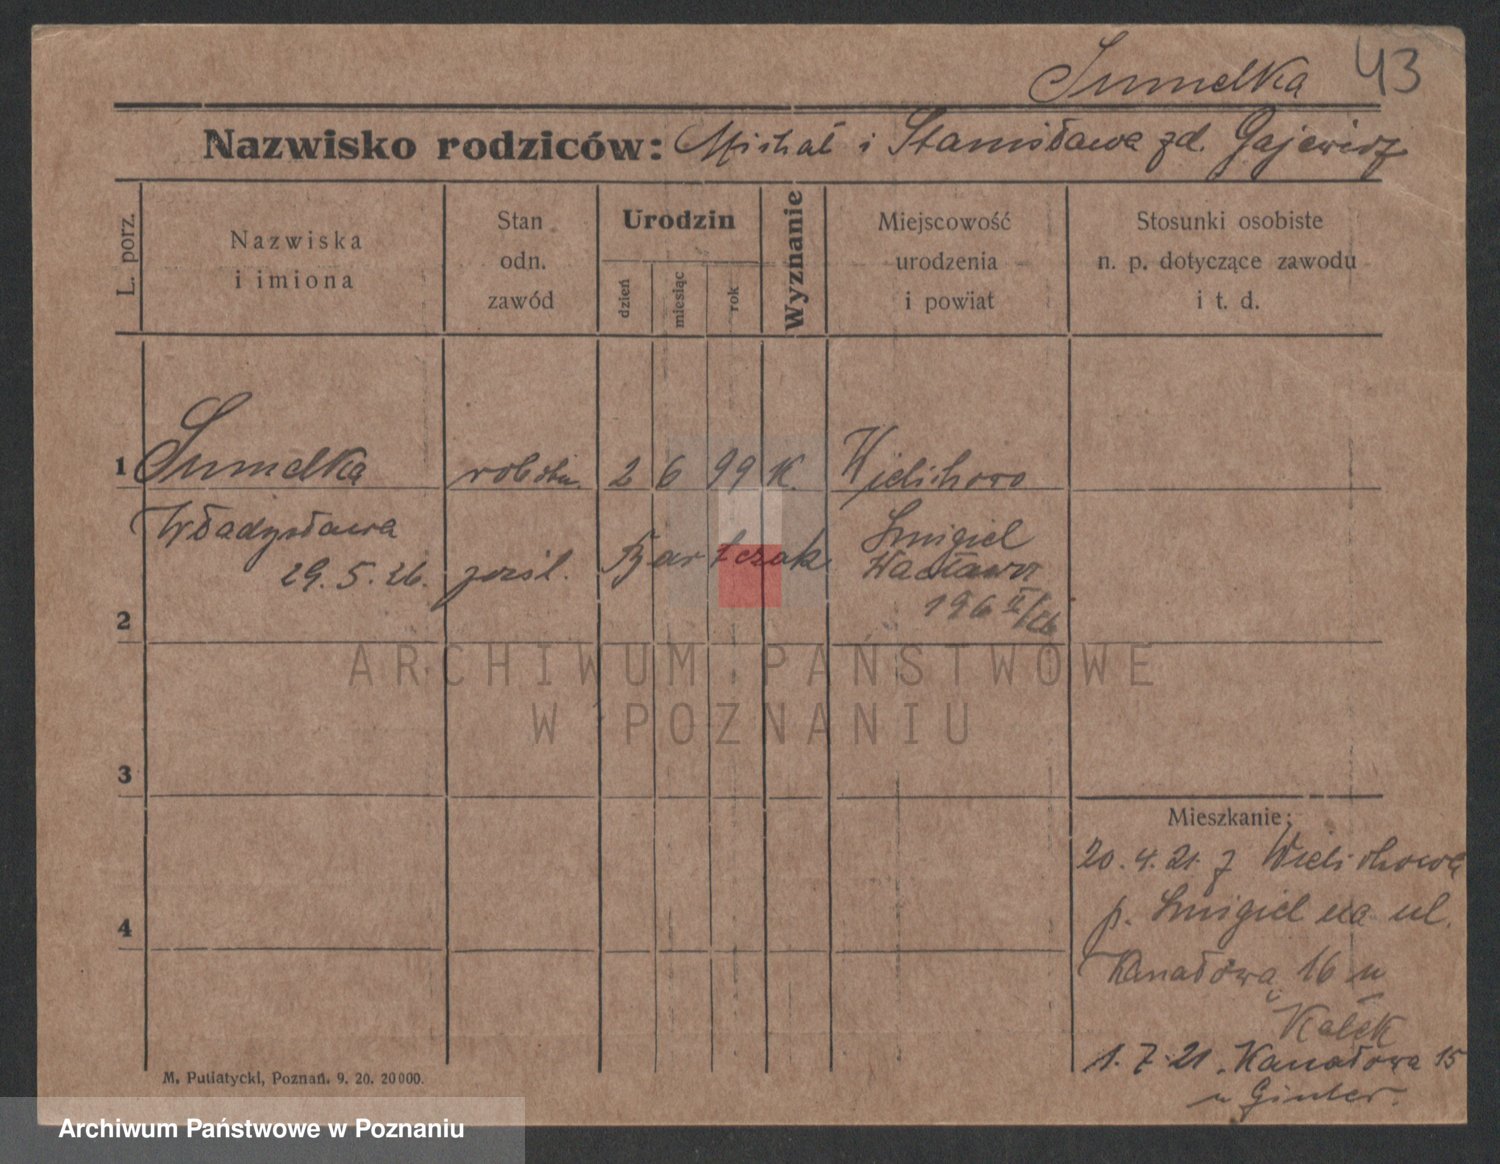 43
Sumelka
Nazwisko rodziców: Michał i Stanisława zd. Gajewicz
L. porz.
Nazwiska
i imiona
Stan
odn.
zawód
Urodzin
dzień
miesiąc
rok
Wyznanie
Miejscowość
urodzenia
i powiat
Stosunki osobiste
n. p. dotyczące zawodu
i t. d.
1 Sumelka robotn. 2 6 99 K. Wielichowo
Władysława Smigiel
29.5.26. pośl. Bartczak Wacława
196 II/26
2
ARCHIWUM PAŃSTWOWE
W POZNANIU
3
Mieszkanie:
20.4.21. z Wielichowa
p. Smigiel na ul.
4
Kanałową 16 u
Kałek
1.7.21. Kanałowa 15
u Ginter.
M. Putiatycki, Poznań. 9. 20. 20000.
Archiwum Państwowe w Poznaniu